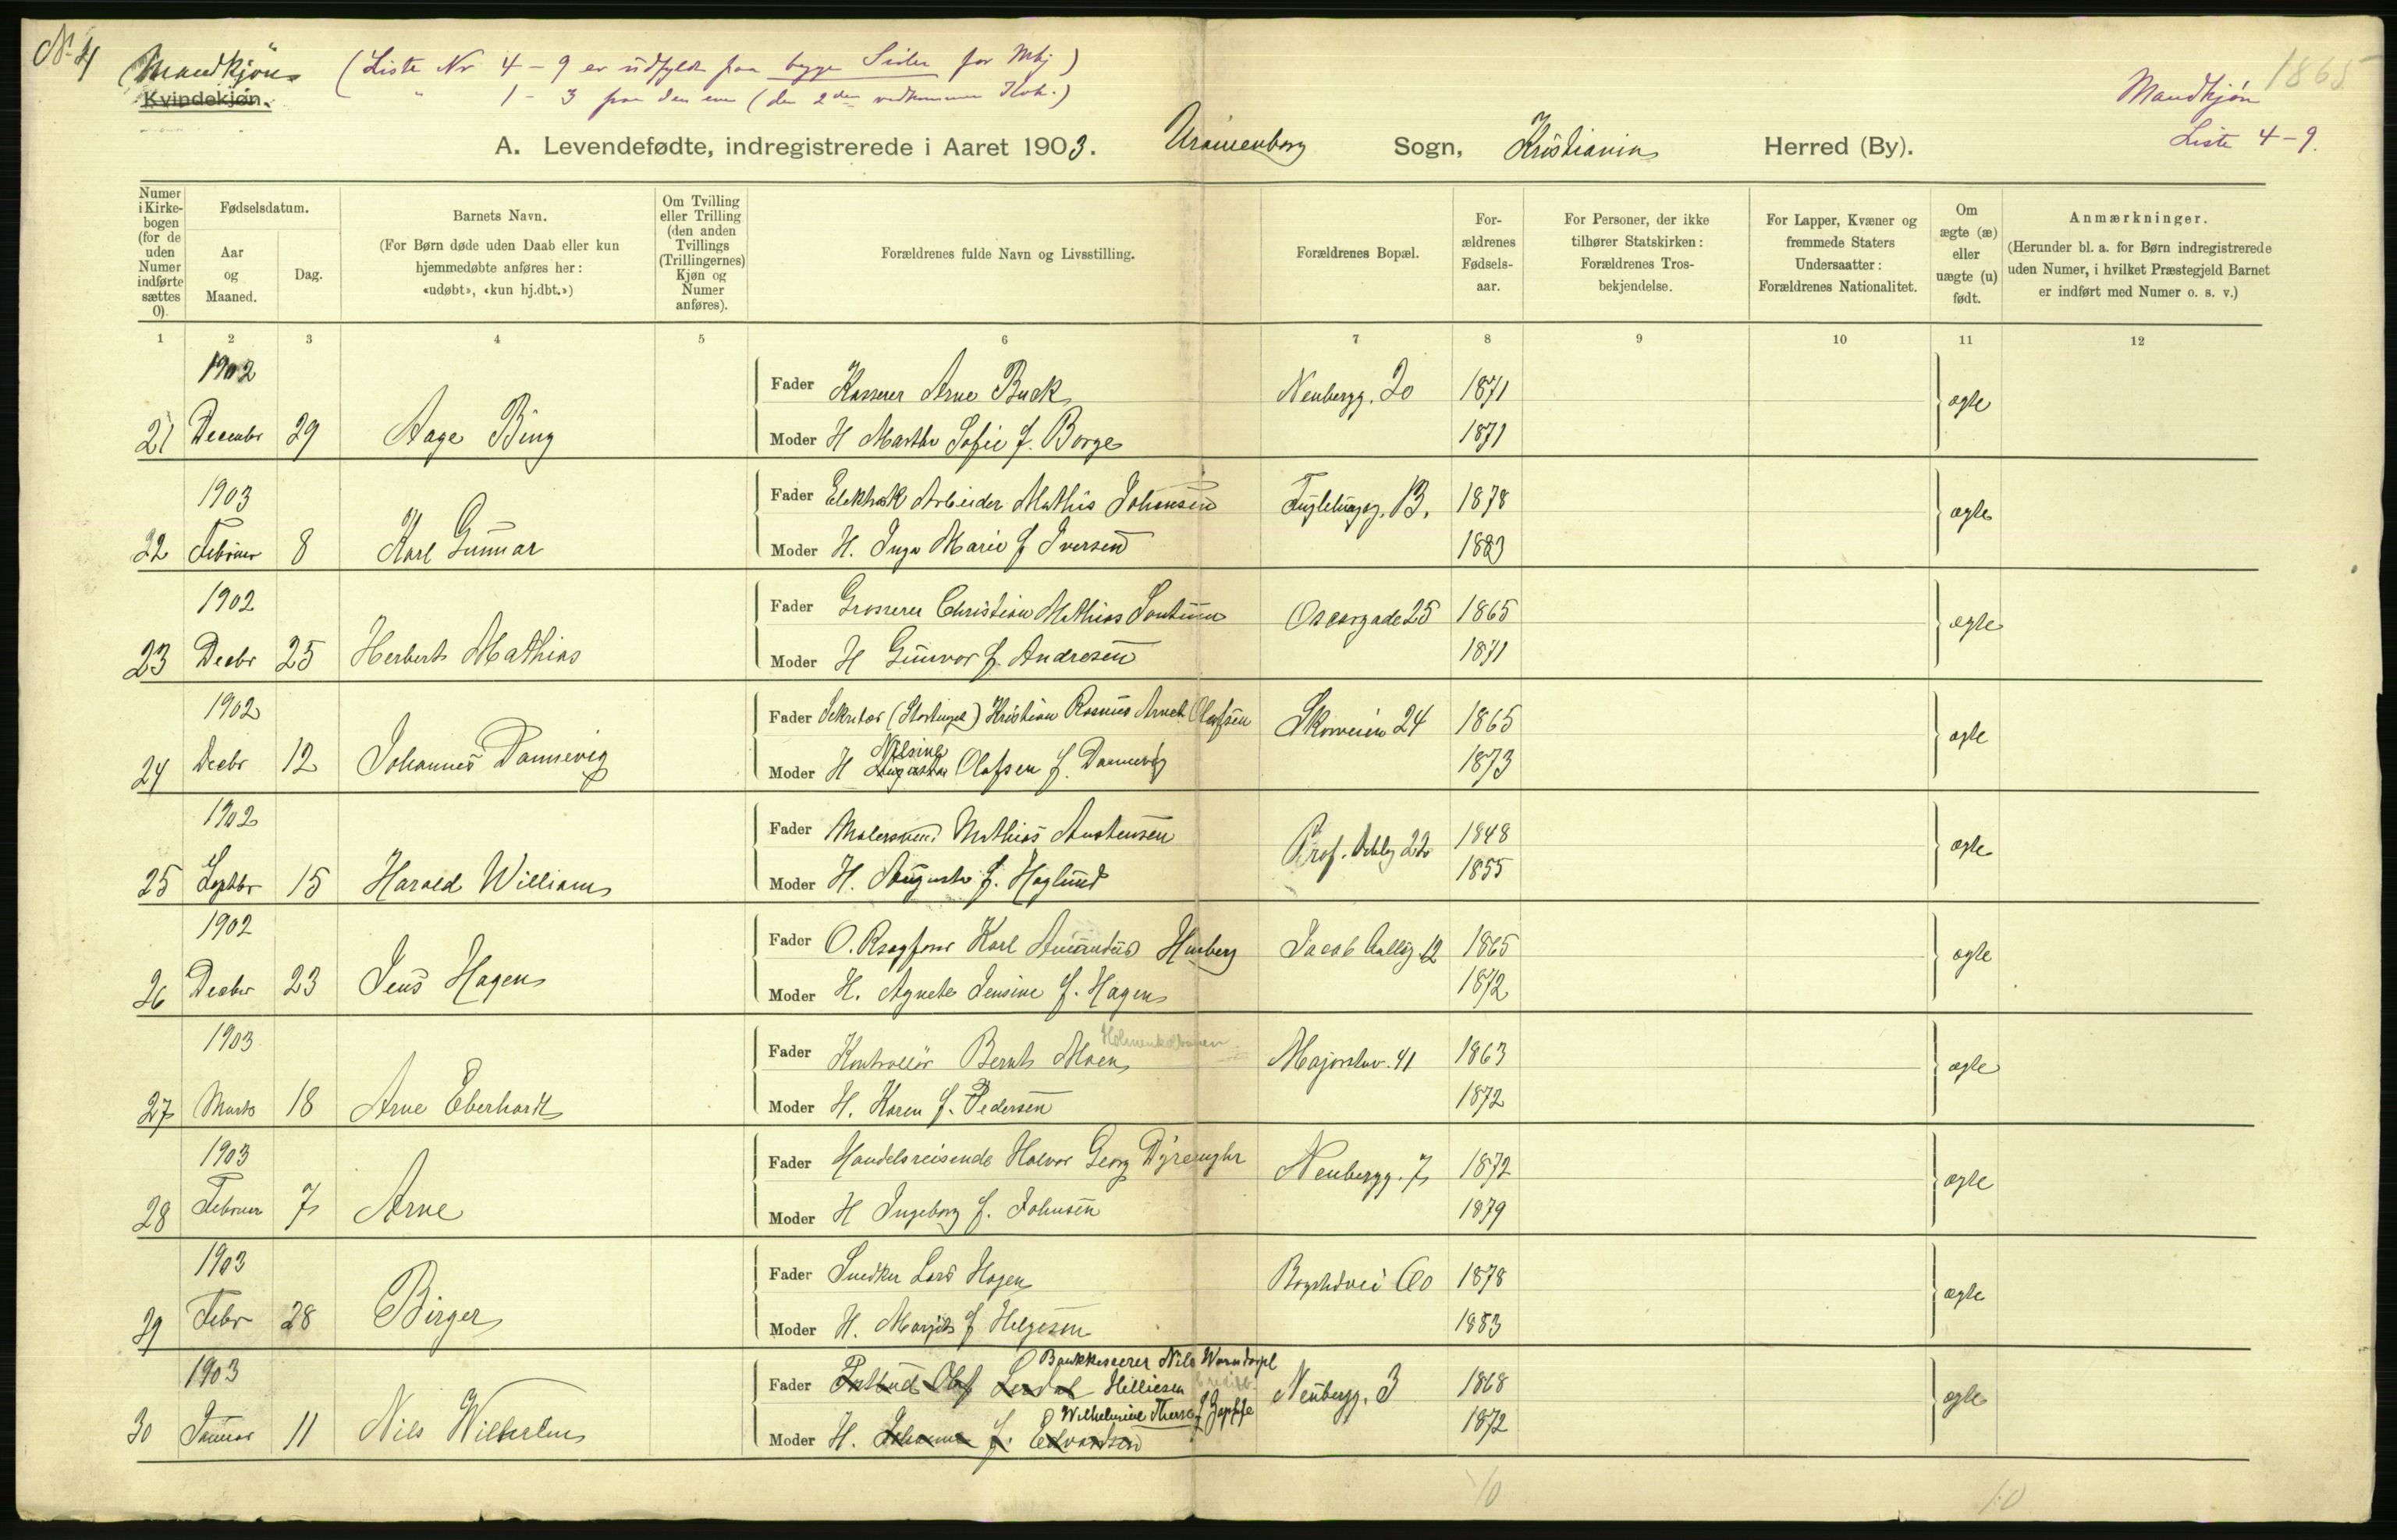 No 4
Mandkjön
Kvindekjøn.
(Liste Nr 4 - 9 er udfyldt paa begge Sider for Mkj)
" 1 - 3 paa den ene (den 2den vedkommer Kvk.)
1865
Mandkjøn
Liste 4-9.
A. Levendefødte, indregistrerede i Aaret 1903. Uranienborg Sogn, Kristiania Herred (By).
Numer i Kirkebogen (for de uden Numer indførte sættes 0).
Fødselsdatum.
Aar og Maaned.
Dag.
Barnets Navn.
(For Børn døde uden Daab eller kun hjemmedøbte anføres her: «udøbt», «kun hj.dbt.»)
Om Tvilling eller Trilling (den anden Tvillings (Trillingernes) Kjøn og Numer anføres).
Forældrenes fulde Navn og Livsstilling.
Forældrenes Bopæl.
For-ældrenes Fødsels-aar.
For Personer, der ikke tilhører Statskirken: Forældrenes Tros-bekjendelse.
For Lapper, Kvæner og fremmede Staters Undersaatter: Forældrenes Nationalitet.
Om ægte (æ) eller uægte (u) født.
Anmærkninger.
(Herunder bl. a. for Børn indregistrerede uden Numer, i hvilket Præstegjeld Barnet er indført med Numer o. s. v.)
1 2 3 4 5 6 7 8 9 10 11 12
1902
Fader Kasserer Arne Buck Neubergg. 20 1871 ægte
21 Decembr 29 Aage Bing Moder H Marthe Sofie f. Borge 1871
1903
Fader Elektrisk Arbeider Mathis Johansen Fuglehaugg. 13. 1878 ægte
22 Februar 8 Karl Gunnar Moder H. Inga Marie f Iversen 1883
1902
Fader Grosserer Christian Mathias Sontum Oscarsgade 25 1865 ægte
23 Decbr 25 Herbert Mathias Moder H Gunvor f. Andresen 1871
1902
Fader Sekretær (Stortinget) Kristian Rasmus Arndt Olafsen Skovveien 24 1865 ægte
24 Decbr 12 Johannes Dannevig Moder H Augusta Nilsine Olafsen f. Dannevig 1873
1902
Fader Malersvend Mathias Austensen Prof. Dahlsg 22 1848 ægte
25 Septbr 15 Harald William Moder H. Augusta f. Haglund 1855
1902
Fader O.Rsagfører Karl Amandus Huuberg Jacob Aallsg. 12 1865 ægte
26 Decbr 23 Jens Hagen Moder H. Agnete Jensine f. Hagen 1872
1903
Fader Kontrollör Bernt Moen Holmenkolbanen Majorstuv. 41 1863 ægte
27 Marts 18 Arne Eberhardt Moder H. Karen f. Pedersen 1872
1903
Fader Handelsreisende Halvor Georg Neubergg. 7 1872 ægte
28 Februar 7 Arne Moder H Ingeborg f. Johnsen 1879
1903
Fader Snedker Lars Hagen Bogstadvei 60 1878 ægte
29 Febr 28 Birger Moder H. Margit f Helgesen 1883
1903
Bankkasserer Nils
Fader Olaf Lerdal Helliesen Neubergg. 3 1868 ægte
Wilhelmine Therese f Zapffe
30 Januar 11 Nils Wilhelm Moder H. Johanne f. Edvardsen 1872
10 10